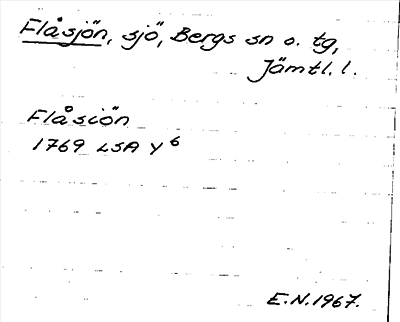 Flåsjön, sjö, Bergs sn o. tg,
Jämtl. l.
Flåsiön
1769 LSA Y 6
E.N. 1967.